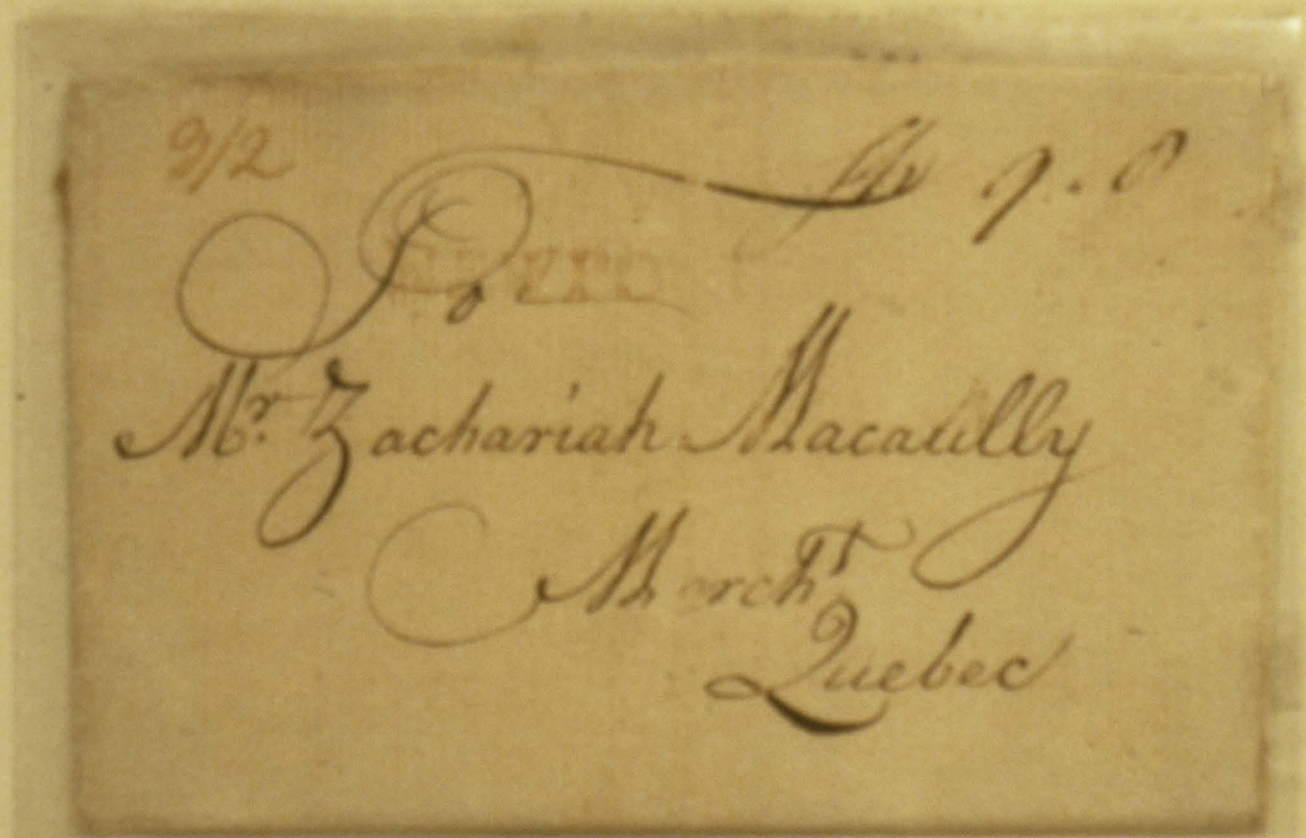 9/2 9.8
To
Mr. Zachariah Macaulley
Mercht
Quebec